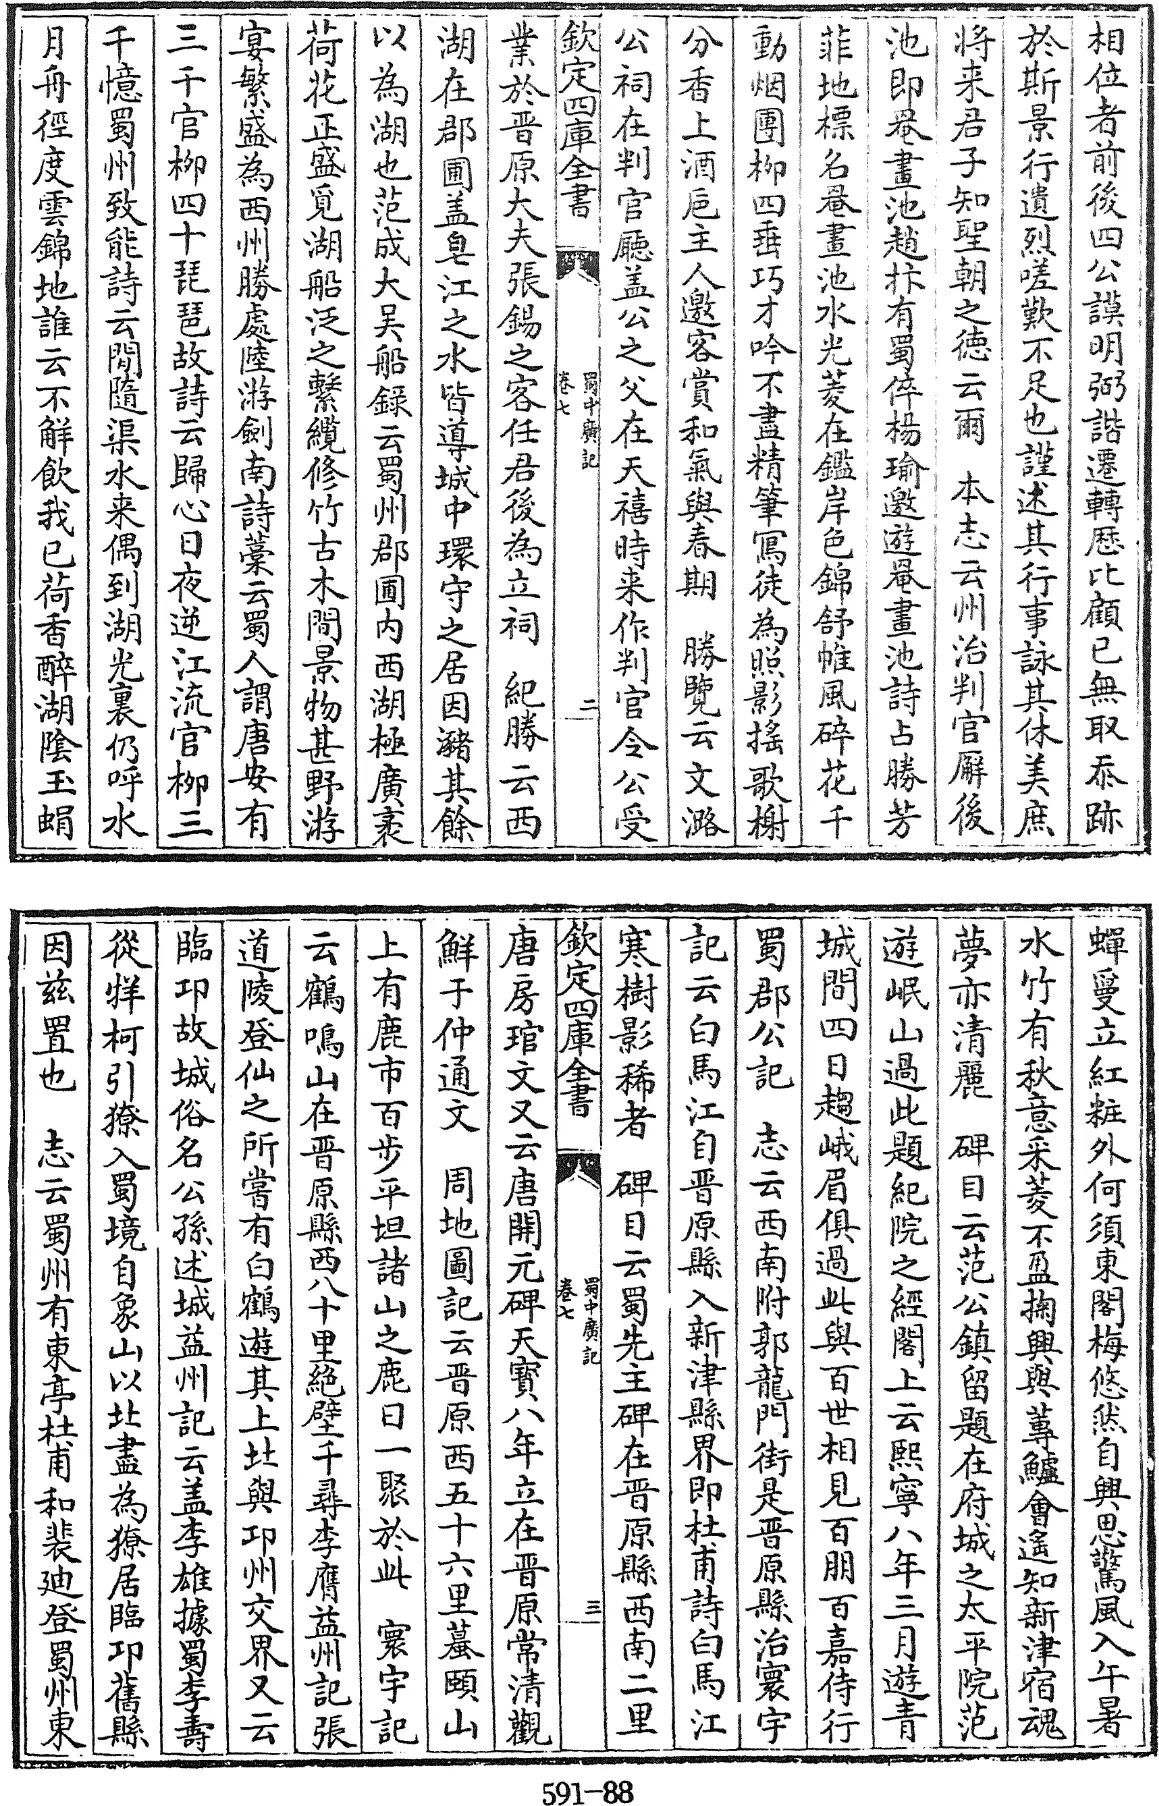 相位者前後四公謨明弼諧遷轉歴比顧已無取忝跡
於斯景行遺烈嗟歎不足也謹述其行事詠其休美庶
将来君子知聖朝之徳云爾　本志云州治判官廨後
池即罨畫池趙抃有蜀倅楊瑜邀遊罨畫池詩占勝芳
菲地標名罨畫池水光菱在鑑岸色錦舒帷風碎花千
動烟團柳四垂巧才吟不盡精筆寫徒為照影揺歌榭
分香上酒巵主人邀客賞和氣與春期　勝覽云文潞
公祠在判官廳盖公之父在天禧時来作判官令公受
欽定四庫全書
蜀中廣記
卷七
二
業於晋原大夫張錫之客任君後為立祠　紀勝云西
湖在郡圃盖皂江之水皆導城中環守之居因瀦其餘
以為湖也范成大吴船録云蜀州郡圃内西湖極廣袤
荷花正盛覓湖船泛之繫纜修竹古木間景物甚野游
宴繁盛為西州勝處陸游劍南詩藁云蜀人謂唐安有
三千官柳四十琵琶故詩云歸心日夜逆江流官柳三
千憶蜀州致能詩云閒隨渠水来偶到湖光裏仍呼水
月舟徑度雲錦地誰云不解飲我已荷香醉湖陰玉蜎
蟬㕛立紅粧外何須東閣梅悠然自興思驚風入午暑
水竹有秋意采菱不盈掬興與蓴鱸會遙知新津宿魂
夢亦清麗　碑目云范公鎮留題在府城之太平院范
遊岷山過此題紀院之經閣上云熙寧八年三月遊青
城間四日趨峨眉俱過此與百世相見百朋百嘉侍行
蜀郡公記　志云西南附郭龍門街是晋原縣治寰宇
記云白馬江自晋原縣入新津縣界即杜甫詩白馬江
寒樹影稀者　碑目云蜀先主碑在晋原縣西南二里
欽定四庫全書
蜀中廣記
卷七
三
唐房琯文又云唐開元碑天寳八年立在晋原常清觀
鮮于仲通文　周地圖記云晋原西五十六里蟇頤山
上有鹿市百步平坦諸山之鹿日一聚於此　寰宇記
云鶴鳴山在晋原縣西八十里絶壁千尋李膺益州記張
道陵登仙之所嘗有白鶴遊其上北與邛州交界又云
臨邛故城俗名公孫述城益州記云盖李雄據蜀李壽
從牂柯引獠入蜀境自象山以北盡為獠居臨邛舊縣
因兹置也　志云蜀州有東亭杜甫和裴廸登蜀州東
591-88